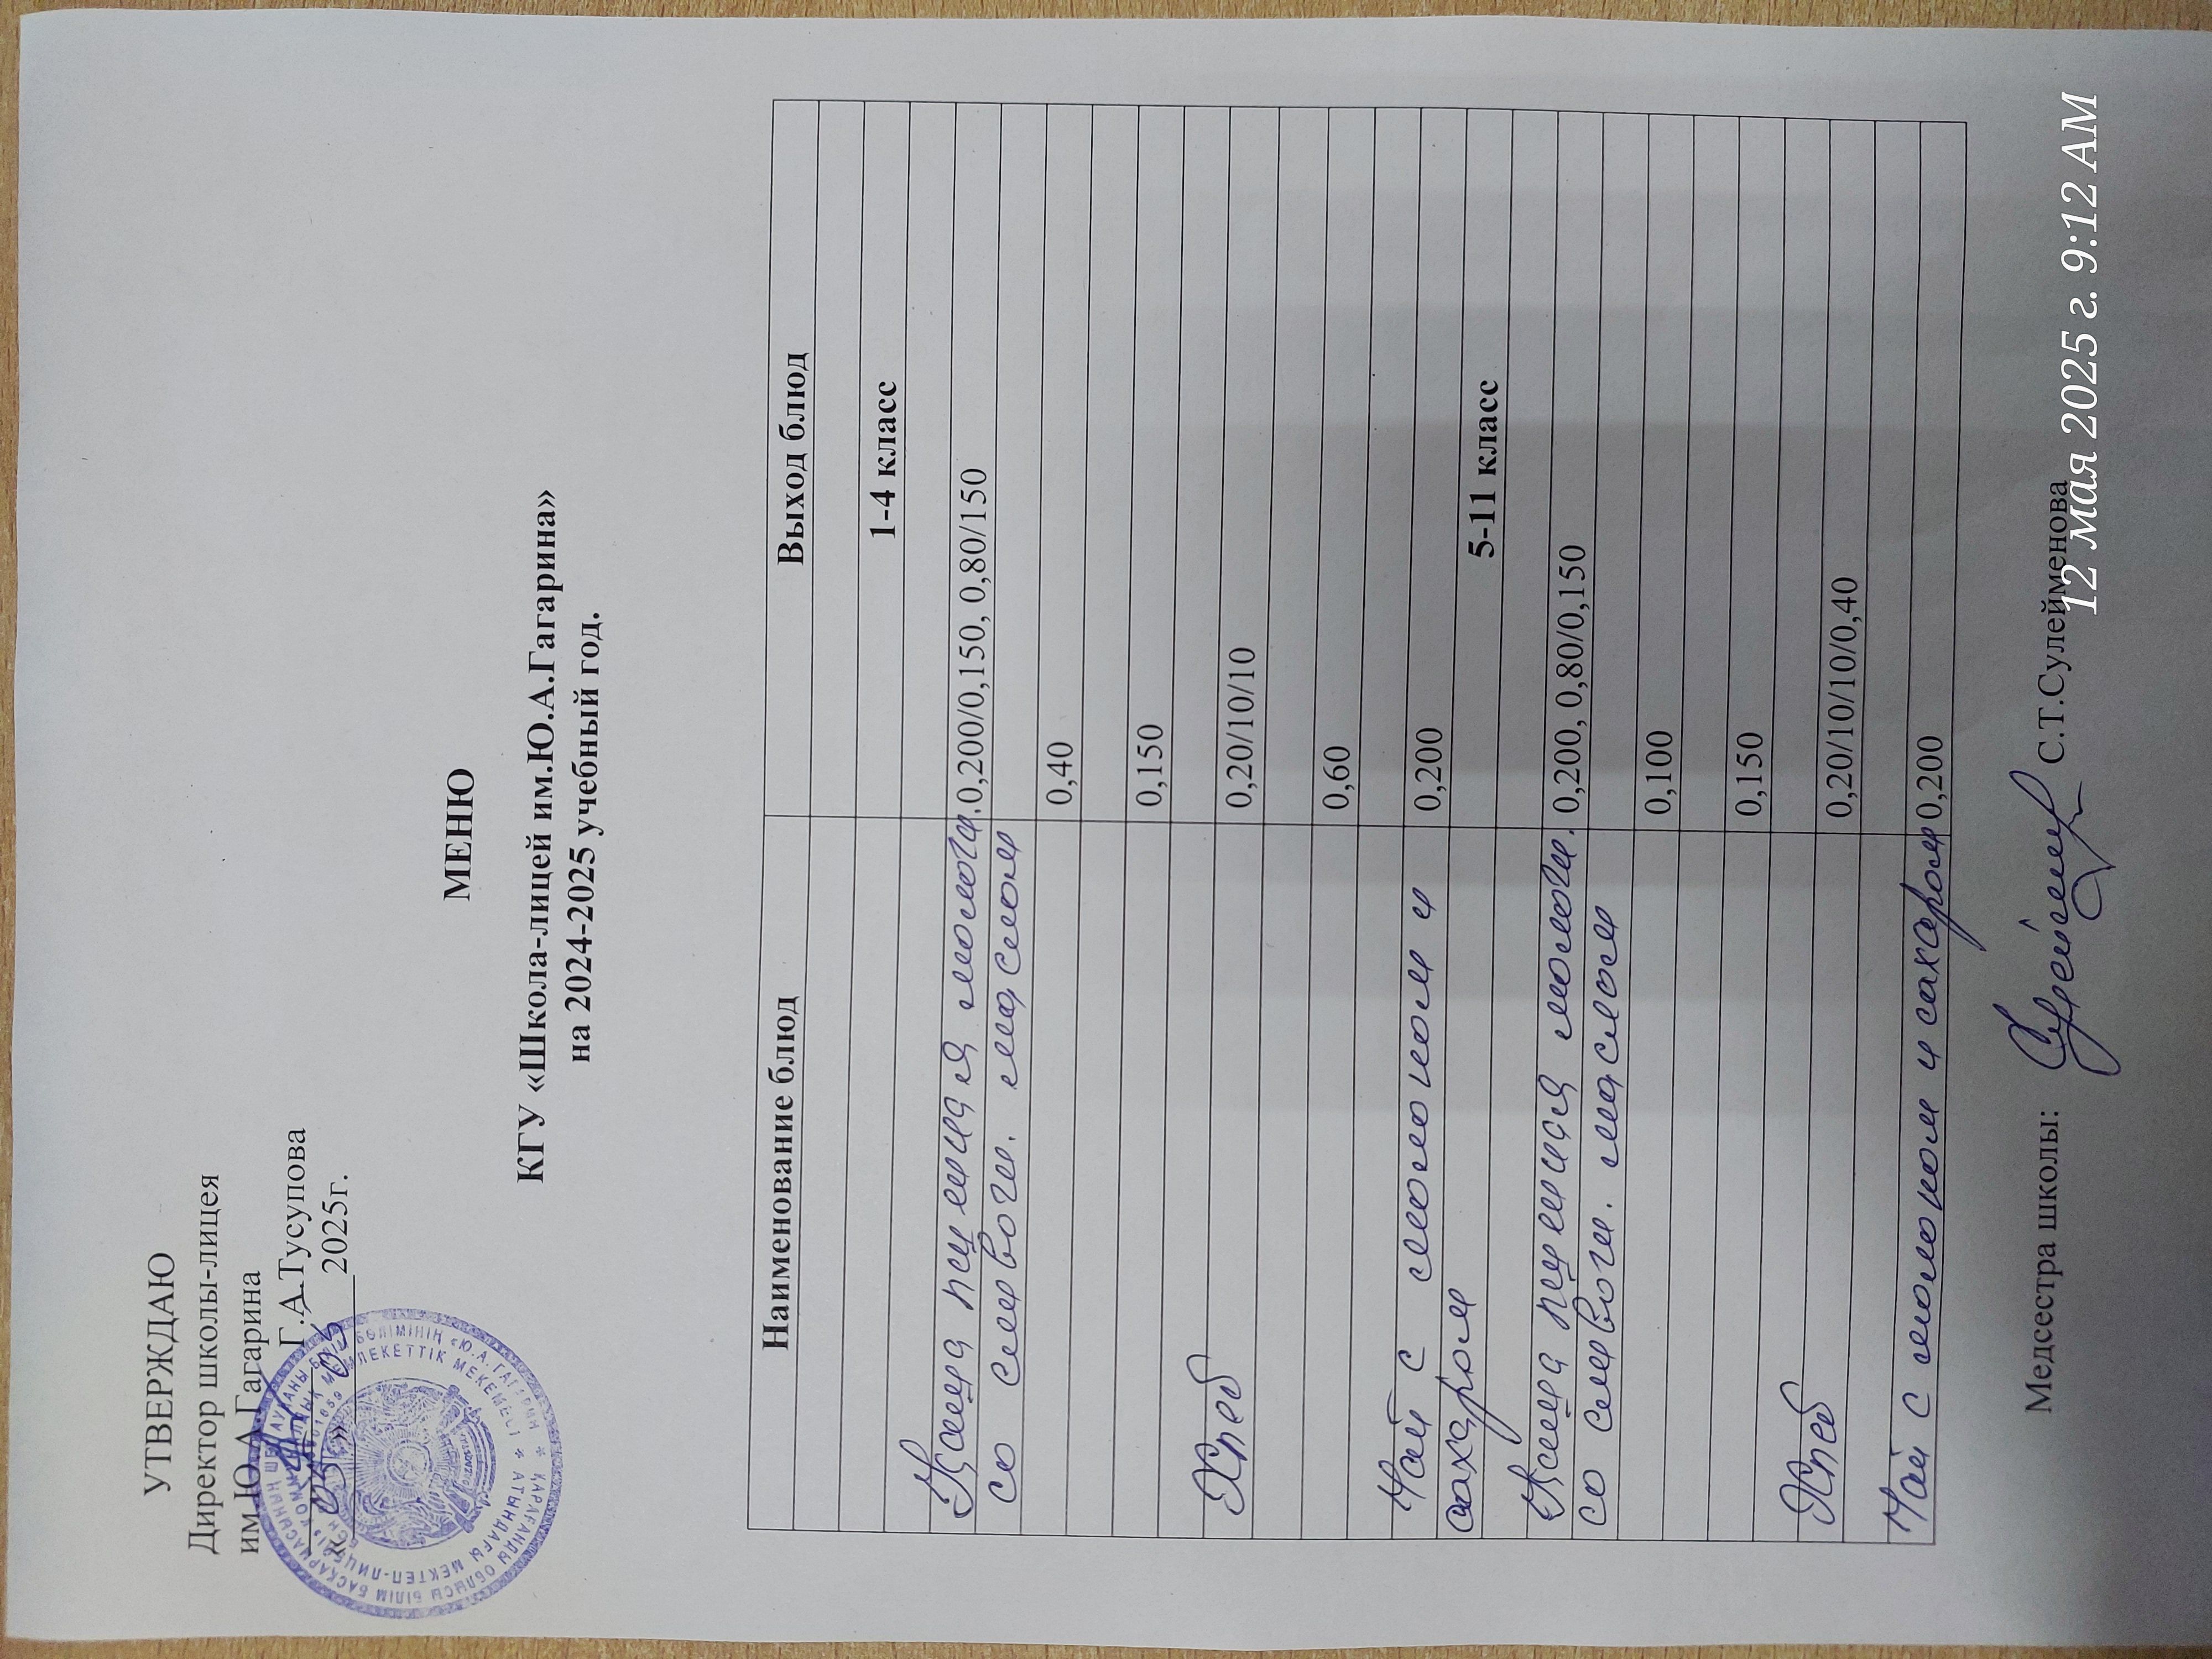 УТВЕРЖДАЮ
Директор школы-лицея
им.Ю.А.Гагарина
Г.А.Тусупова
« 05 » 05 2025г.
МЕНЮ
КГУ «Школа-лицей им.Ю.А.Гагарина»
на 2024-2025 учебный год.
Наименование блюд Выход блюд
1-4 класс
Каша пшенная молочн. 0,200/0,150, 0,80/150
со сливочн. маслом
0,40
0,150
Хлеб 0,20/10/10
0,60
Чай с молоком и 0,200
сахаром 5-11 класс
Каша пшенная молочн. 0,200, 0,80/0,150
со сливочн. маслом
0,100
0,150
Хлеб 0,20/10/10/0,40
Чай с молоком и сахаром 0,200
Медсестра школы: С.Т.Сулейменова
12 мая 2025 г. 9:12 AM